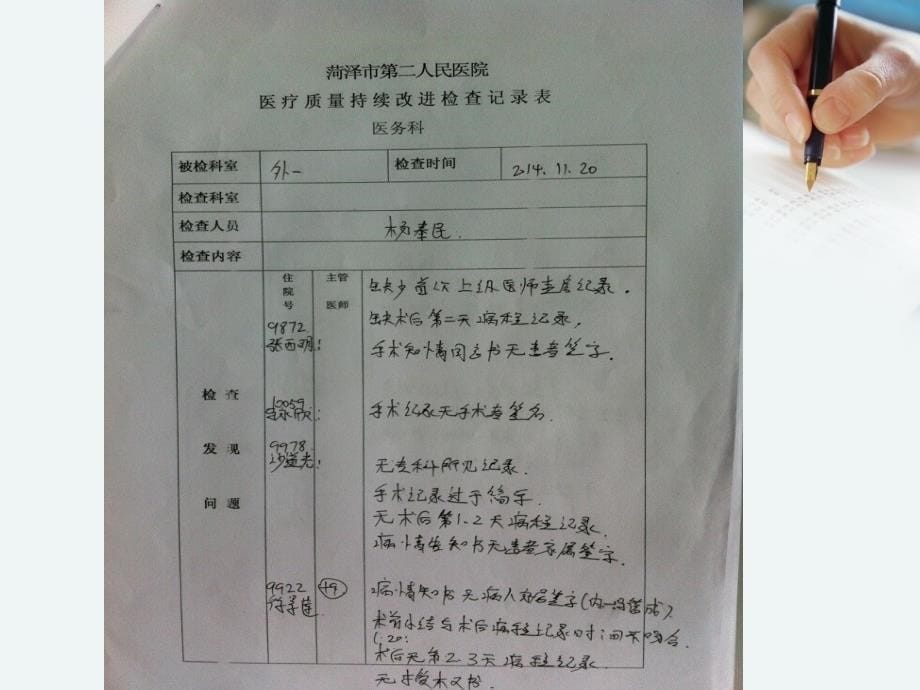 菏泽市第二人民医院
医疗质量持续改进检查记录表
医务科
被检科室 外一 检查时间 2014.11.20
检查科室
检查人员 杨奉民.
检查内容
住院号 主管医师
检查发现问题
缺少首次上级医师查房记录.
9872. 缺术后第二天病程记录,
张西明: 手术知情同意书无患者签字.
10059 手术记录无手术者签名.
9978.
无专科所见记录.
手术记录过于简单.
无术后第1-2天病程记录.
病情告知书无患者家属签字.
9922 病情知书无病人对签字(
术前小结与术后病程记录时间不吻合
1.20:
术后无第2.3天病程记录.